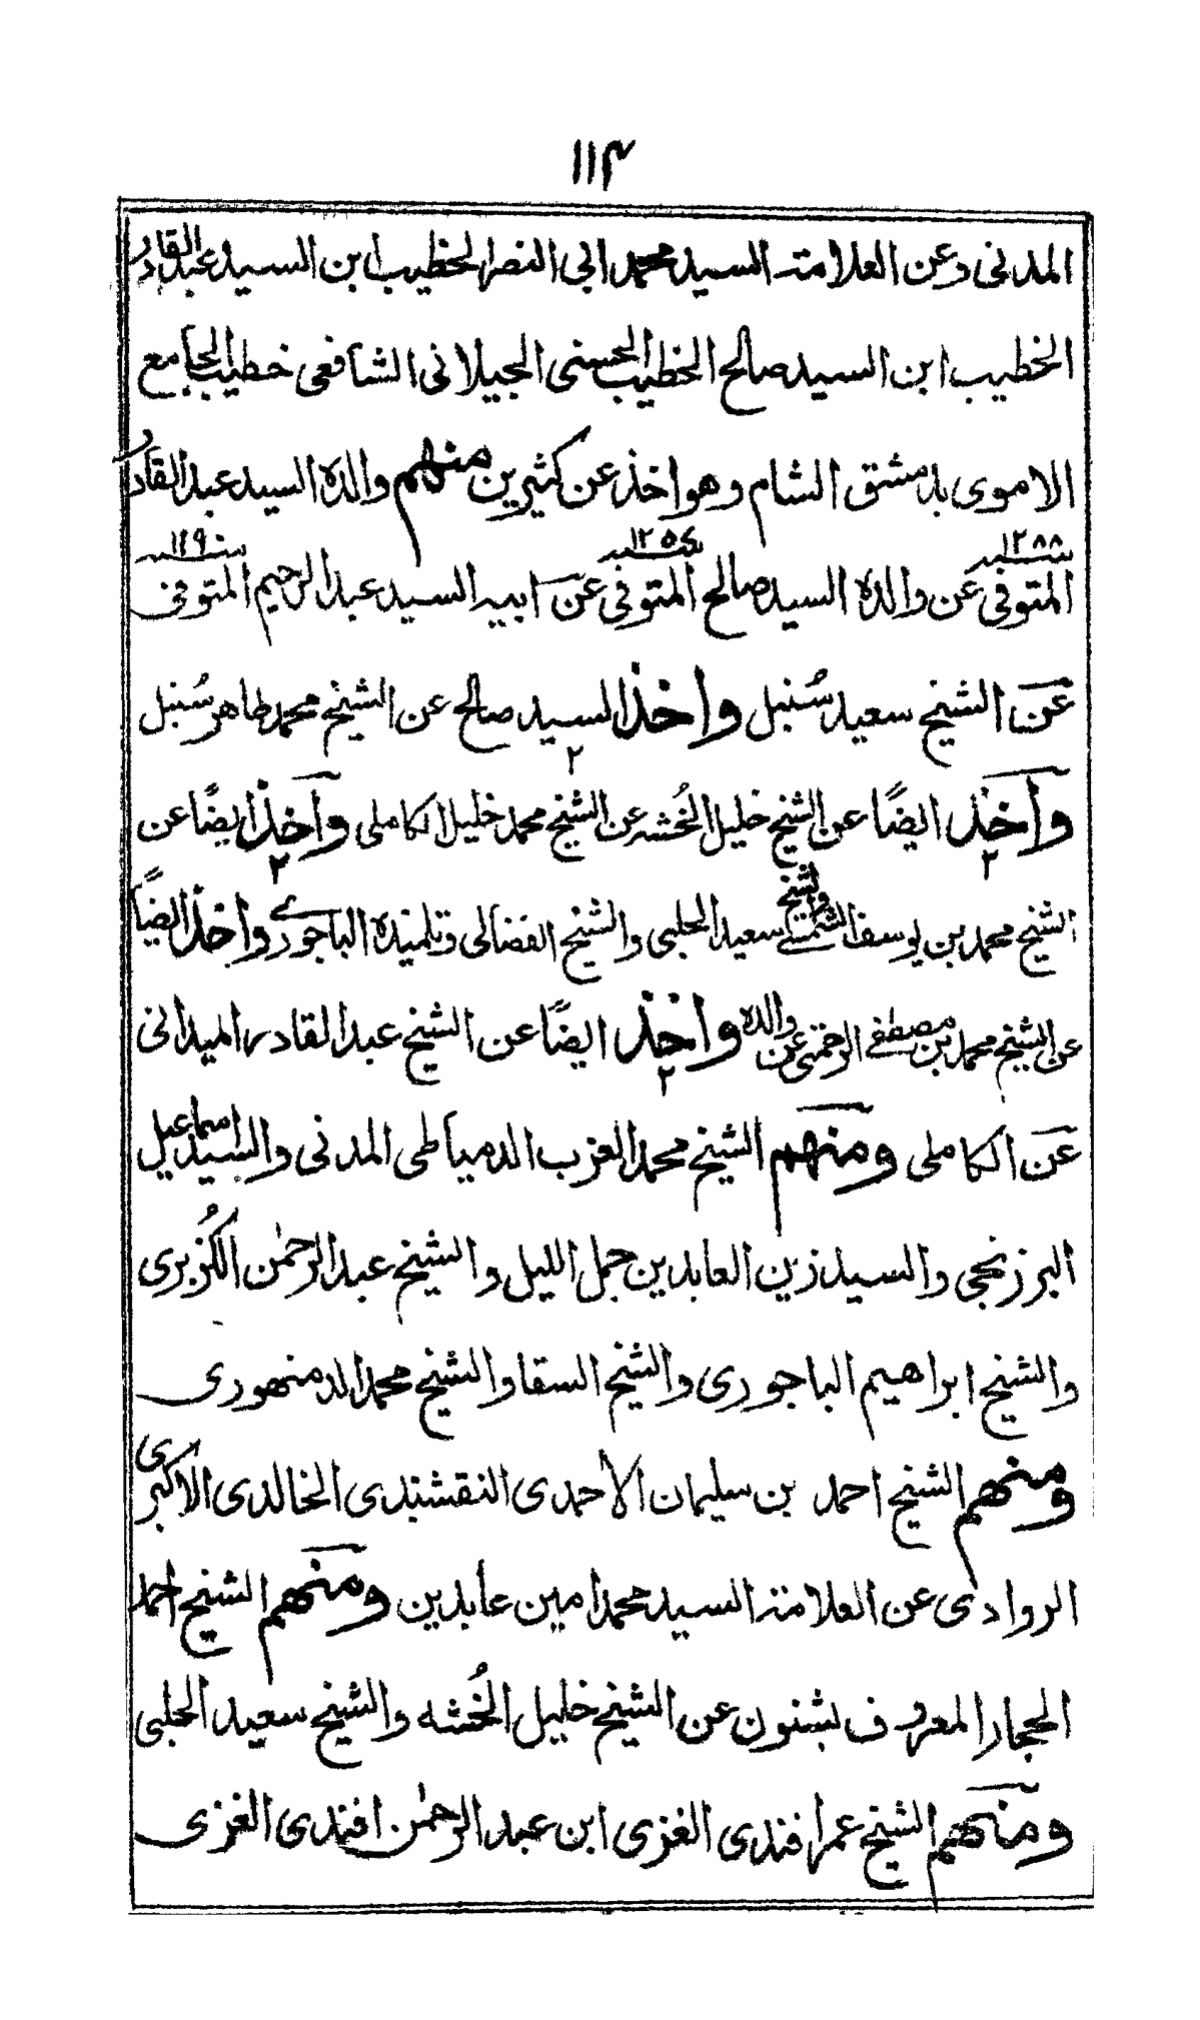 ١١٤
المدنى وعن العلامة السيد محمد ابى النصر الخطيب ابن السيد عبد القادر
الخطيب ابن السيد صالح الخطيب الحسنى الجيلانى الشافعى خطيب الجامع
الاموى بدمشق الشام وهو اخذ عن كثيرين منهم والده السيد عبد القادر
المتوفى سنة ١٢٨٨ عن والده السيد صالح المتوفى سنة ١٢٥٤ عن ابيه السيد عبد الرحيم المتوفى سنة ١١٩٠
عن الشيخ سعيد سُنبل واخذ السيد صالح عن الشيخ محمد طاهر سُنبل
واخذ ٢ ايضًا عن الشيخ خليل الخُشه عن الشيخ ٢ محمد خليل الكاملى واخذ ٢ ايضًا عن
الشيخ محمد بن يوسف الشمسى والشيخ سعيد الحلبى والشيخ الفضالى وتلميذه الباجورى واخذ ايضًا
عن الشيخ محمد بن مصطفى الرحمتى عن والده واخذ ٢ ايضًا عن الشيخ عبد القادر الميدانى
عن الكاملى ومنهم الشيخ محمد العزب الدمياطى المدنى والسيد اسماعيل
البرزنجى والسيد زين العابدين جمل الليل والشيخ عبد الرحمٰن الكُزبرى
والشيخ ابراهيم الباجورى والشيخ السقا والشيخ محمد الدمنهورى
ومنهم الشيخ احمد بن سليمان الاحمدى النقشبندى الخالدى الاكبرى
الروادى عن العلامة السيد محمد امين عابدين ومنهم الشيخ احمد
الحجار المعروف بشنون عن الشيخ خليل الخُشه والشيخ سعيد الحلبى
ومنهم الشيخ عمر افندى الغزى ابن عبد الرحمٰن افندى الغزى